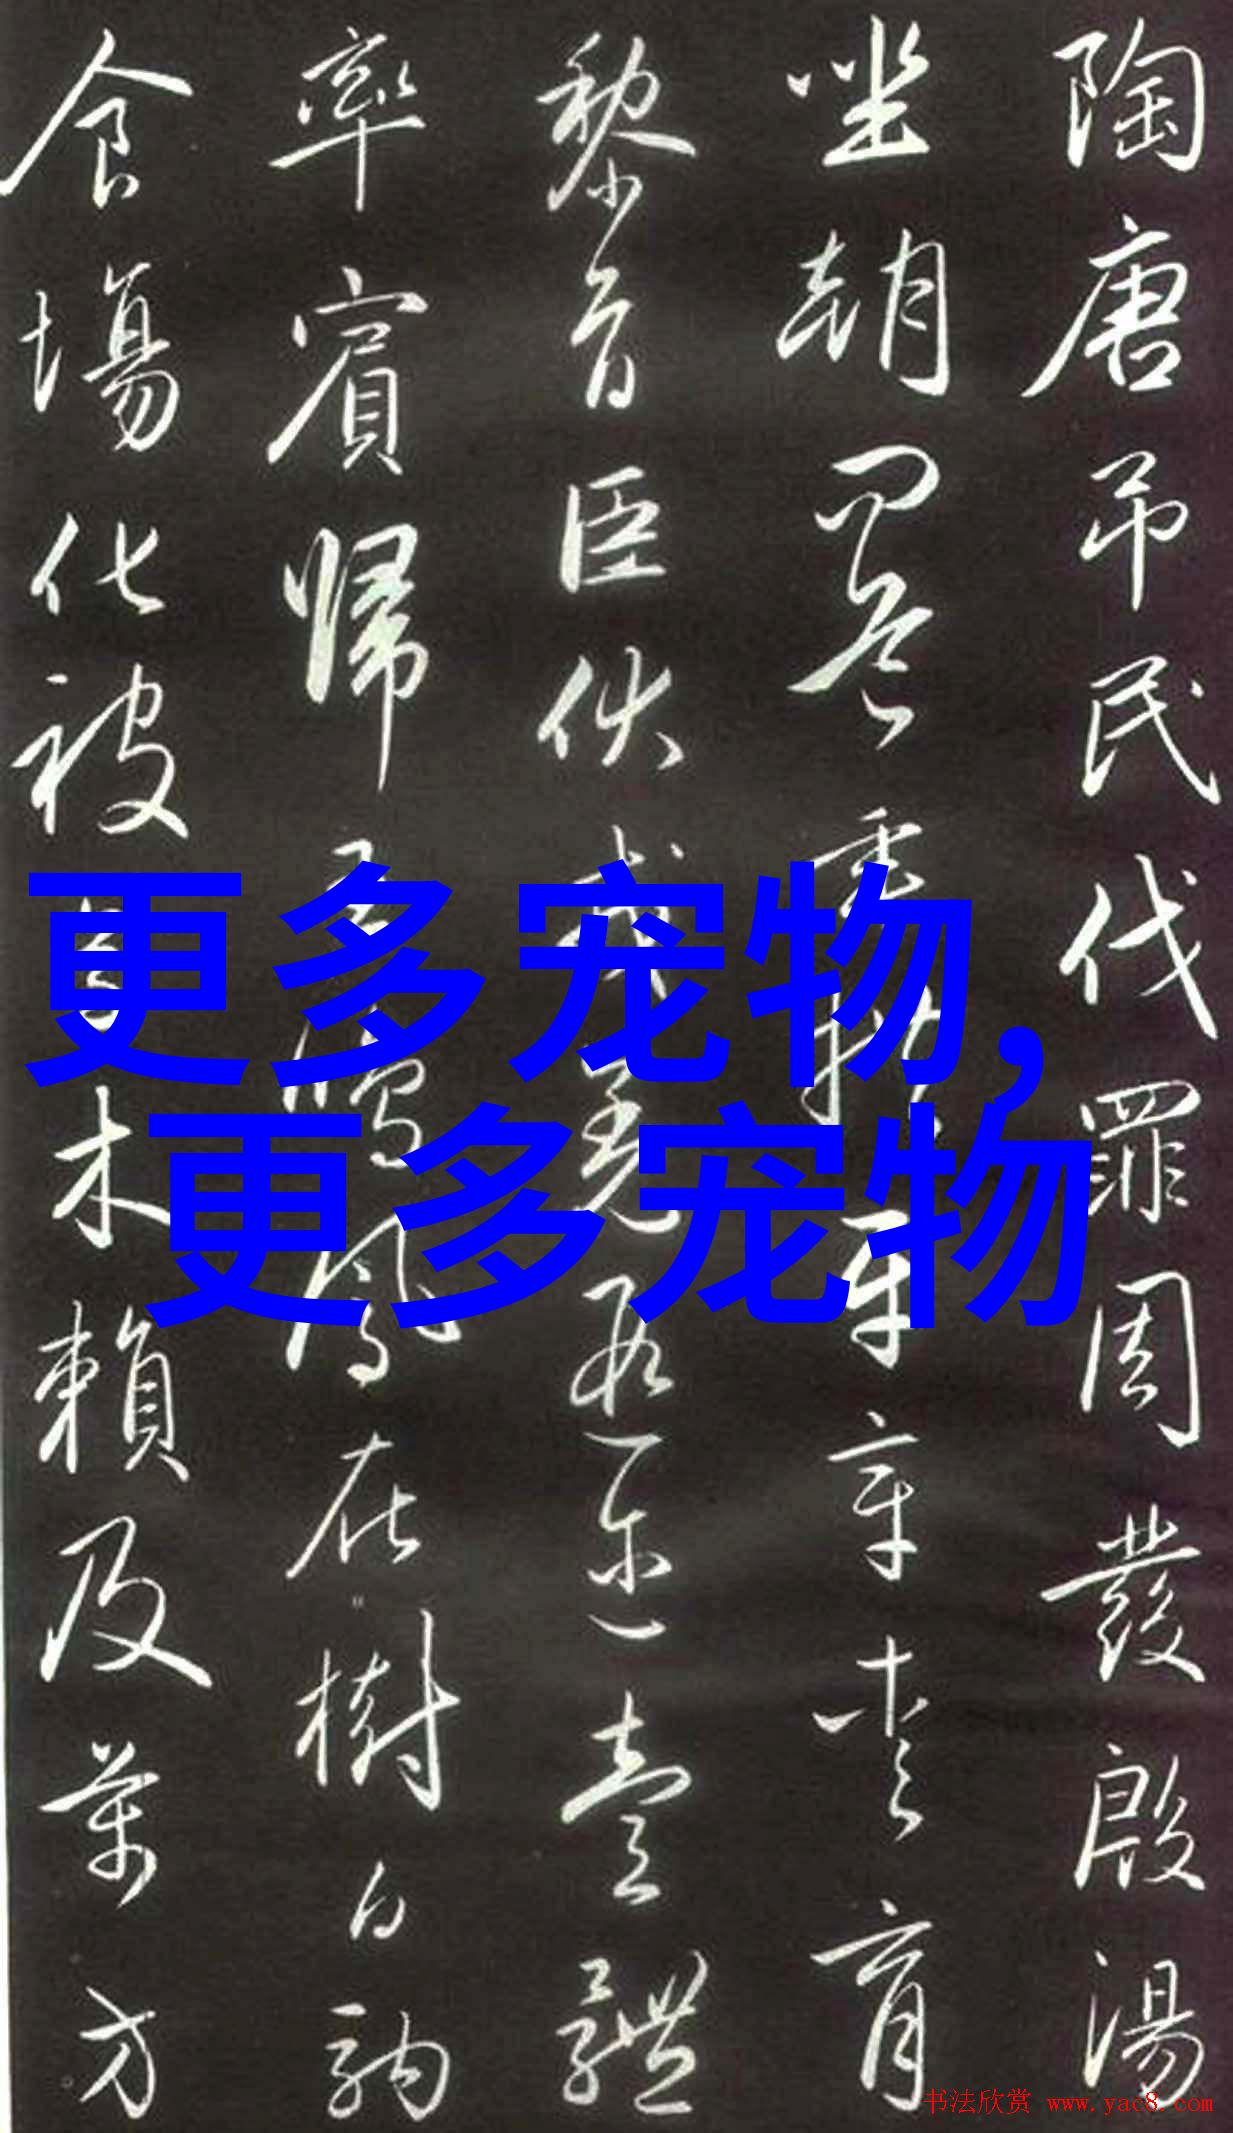 陶唐吊民伐罪周發殷湯
坐朝問道垂拱平章愛育
黎首臣伏戎羌遐迩壹體
率賓歸王鳴鳳在樹白駒
食場化被草木賴及萬方
更多宠物,
更多宠物
书法欣赏 www.yac8.com